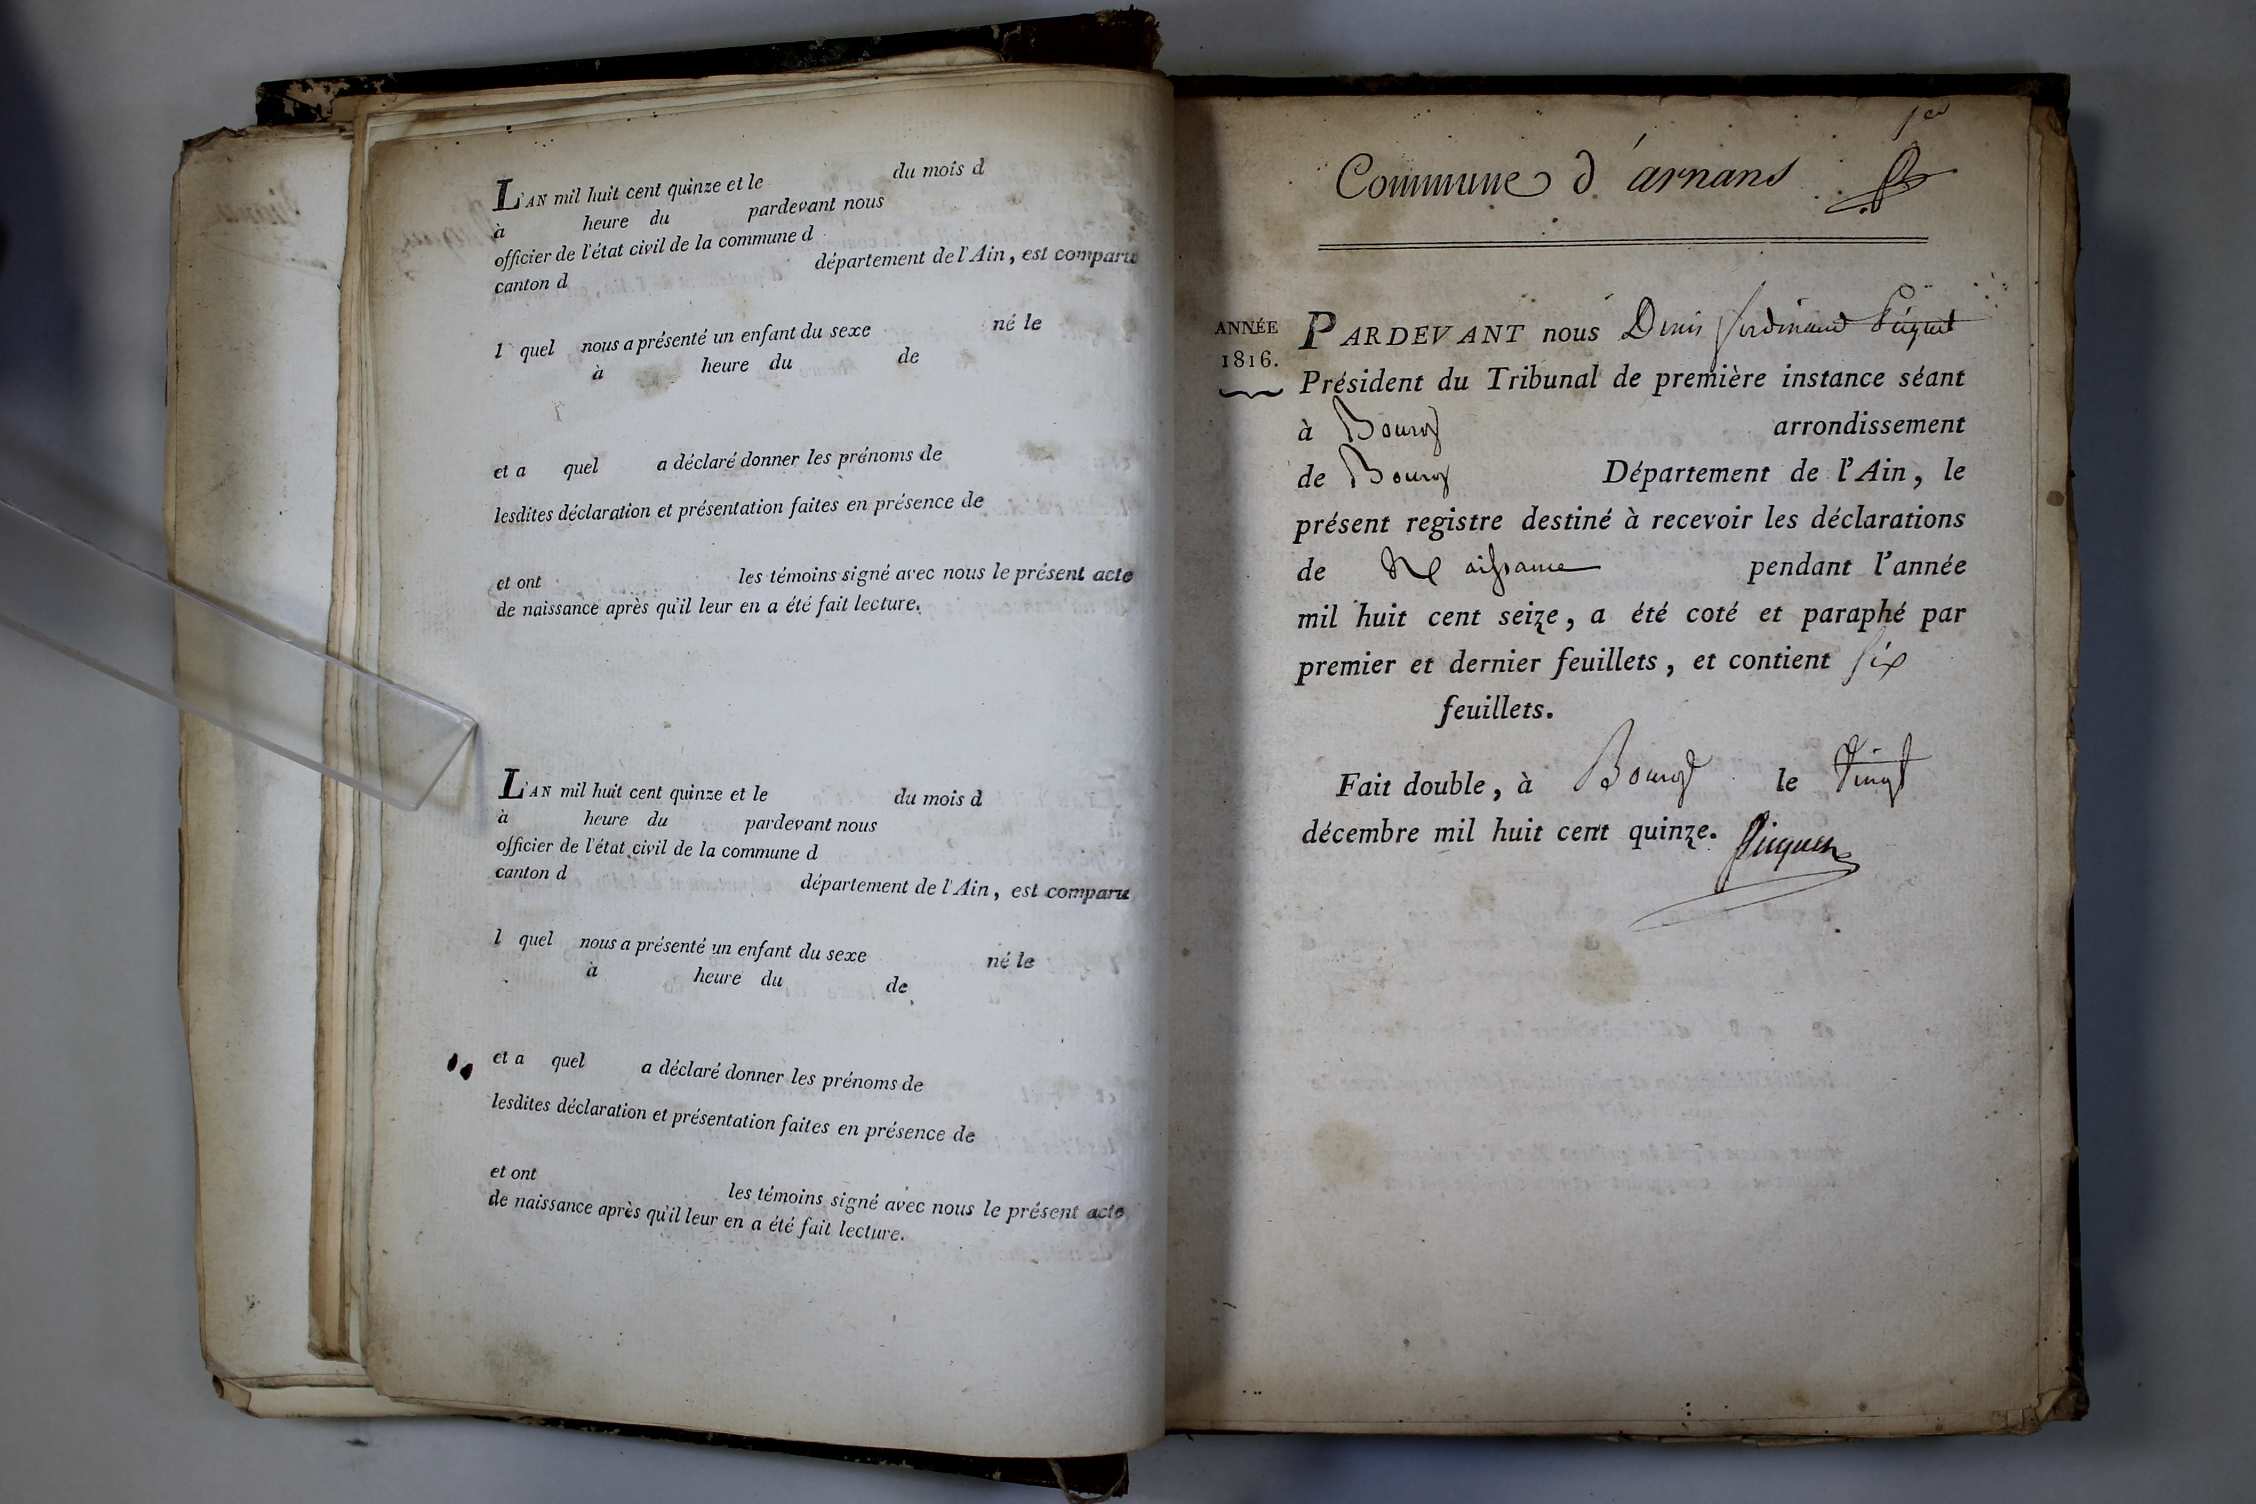 L'AN mil huit cent quinze et le du mois d
à heure du pardevant nous
officier de l'état civil de la commune d
canton d département de l'Ain, est comparu
l quel nous a présenté un enfant du sexe né le
à heure du de
et a quel a déclaré donner les prénoms de
lesdites déclaration et présentation faites en présence de
et ont les témoins signé avec nous le présent acte
de naissance après qu'il leur en a été fait lecture.
L'AN mil huit cent quinze et le du mois d
à heure du pardevant nous
officier de l'état civil de la commune d
canton d département de l'Ain, est comparu
l quel nous a présenté un enfant du sexe né le
à heure du de
et a quel a déclaré donner les prénoms de
lesdites déclaration et présentation faites en présence de
et ont les témoins signé avec nous le présent acte
de naissance après qu'il leur en a été fait lecture.
1er
Commune d'arnans
ANNÉE
1816.
PARDEVANT nous Denis ferdinand Picquet
Président du Tribunal de première instance séant
à Bourg arrondissement
de Bourg Département de l'Ain, le
présent registre destiné à recevoir les déclarations
de Naissance pendant l'année
mil huit cent seize, a été coté et paraphé par
premier et dernier feuillets, et contient six
feuillets.
Fait double, à Bourg le Vingt
décembre mil huit cent quinze. Picquet